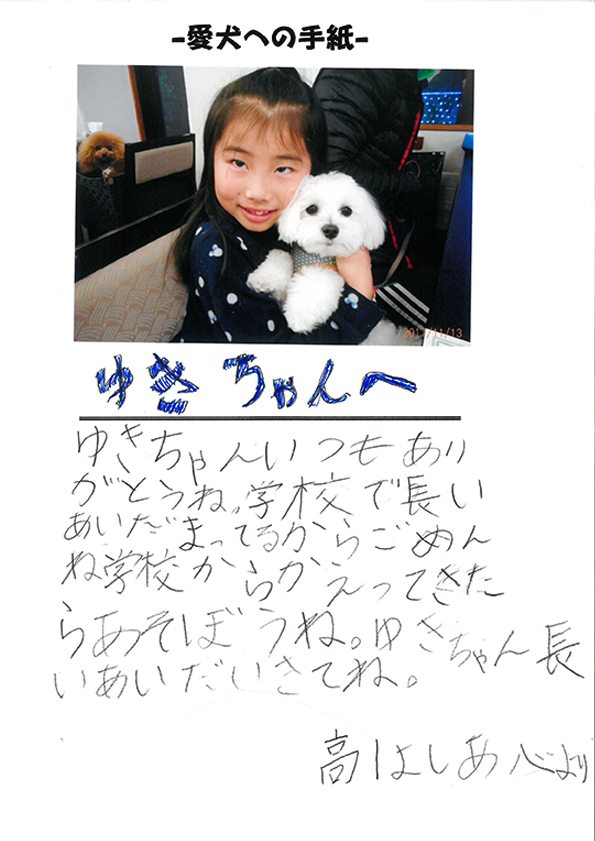 -愛犬への手紙-
2017/11/13
ゆきちゃんへ
ゆきちゃんいつもあり
がとうね。学校で長い
あいだまってるからごめん
ね学校からかえってきた
らあそぼうね。ゆきちゃん長
いあいだいきてね。
高はしあ心より